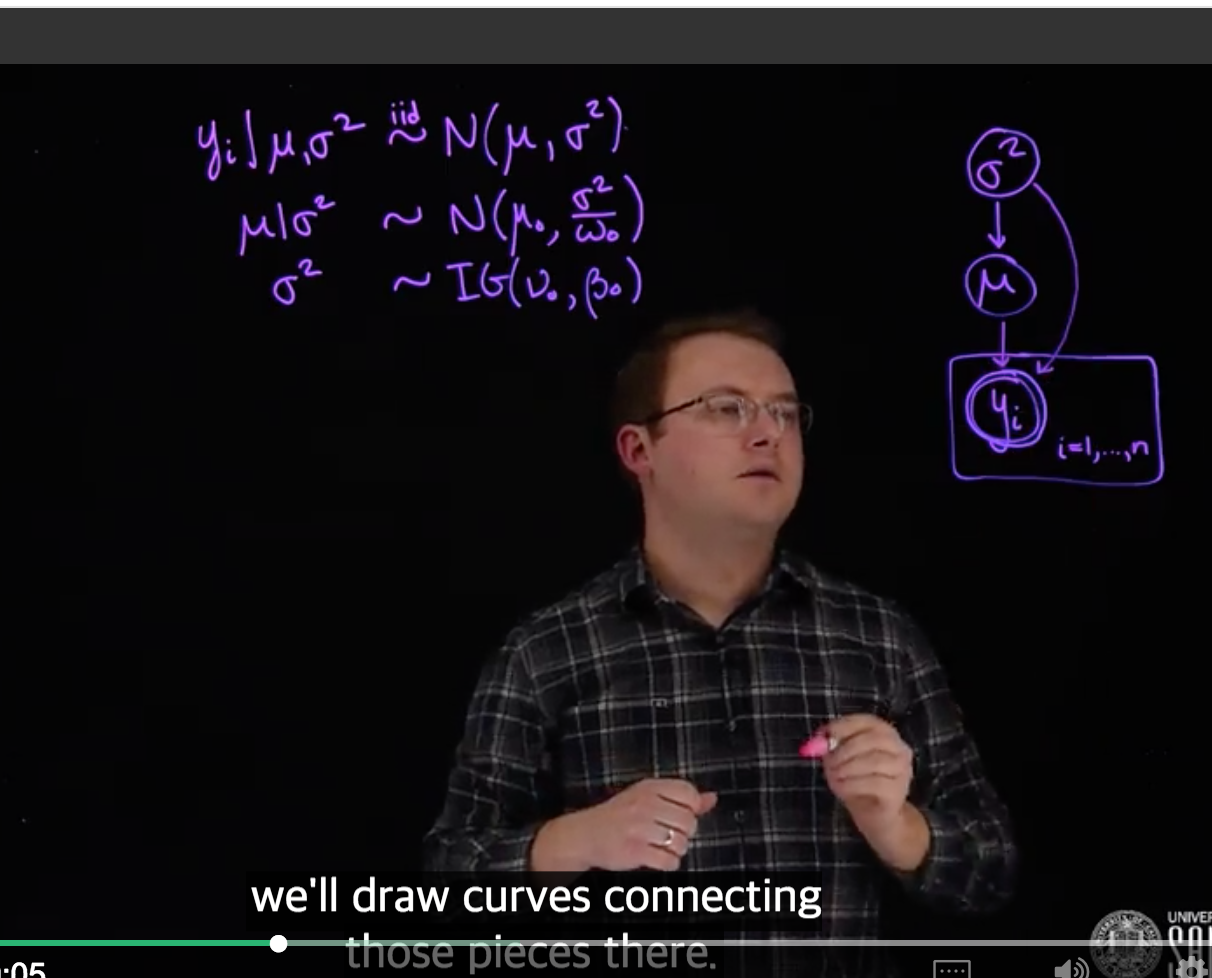 yᵢ | μ, σ² ~ⁱⁱᵈ N(μ, σ²)
μ | σ² ~ N(μ₀, σ²/ω₀)
σ² ~ IG(ν₀, β₀)
σ²
μ
yᵢ
i=1,...,n
we'll draw curves connecting
those pieces there.
:05